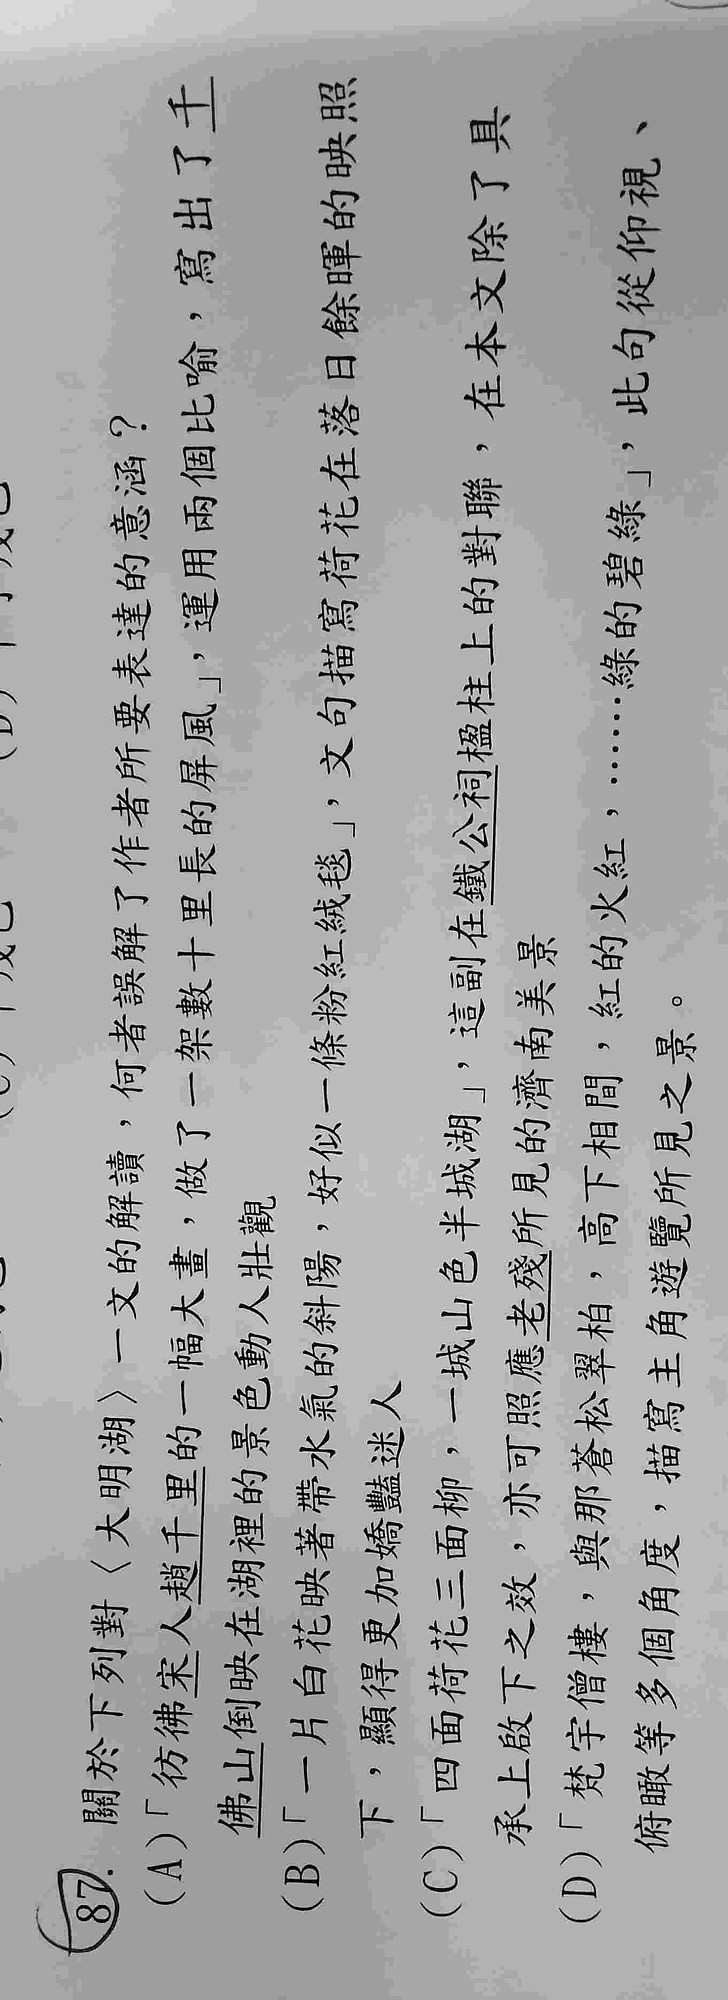 87. 關於下列對〈大明湖〉一文的解讀，何者誤解了作者所要表達的意涵？
(A)「彷彿宋人趙千里的一幅大畫，做了一架數十里長的屏風」，運用兩個比喻，寫出了千
佛山倒映在湖裡的景色動人壯觀
(B)「一片白花映著帶水氣的斜陽，好似一條粉紅絨毯」，文句描寫荷花在落日餘暉的映照
下，顯得更加嬌豔迷人
(C)「四面荷花三面柳，一城山色半城湖」，這副在鐵公祠楹柱上的對聯，在本文除了具
承上啟下之效，亦可照應老殘所見的濟南美景
(D)「梵宇僧樓，與那蒼松翠柏，高下相間，紅的火紅，……綠的碧綠」，此句從仰視、
俯瞰等多個角度，描寫主角遊覽所見之景。